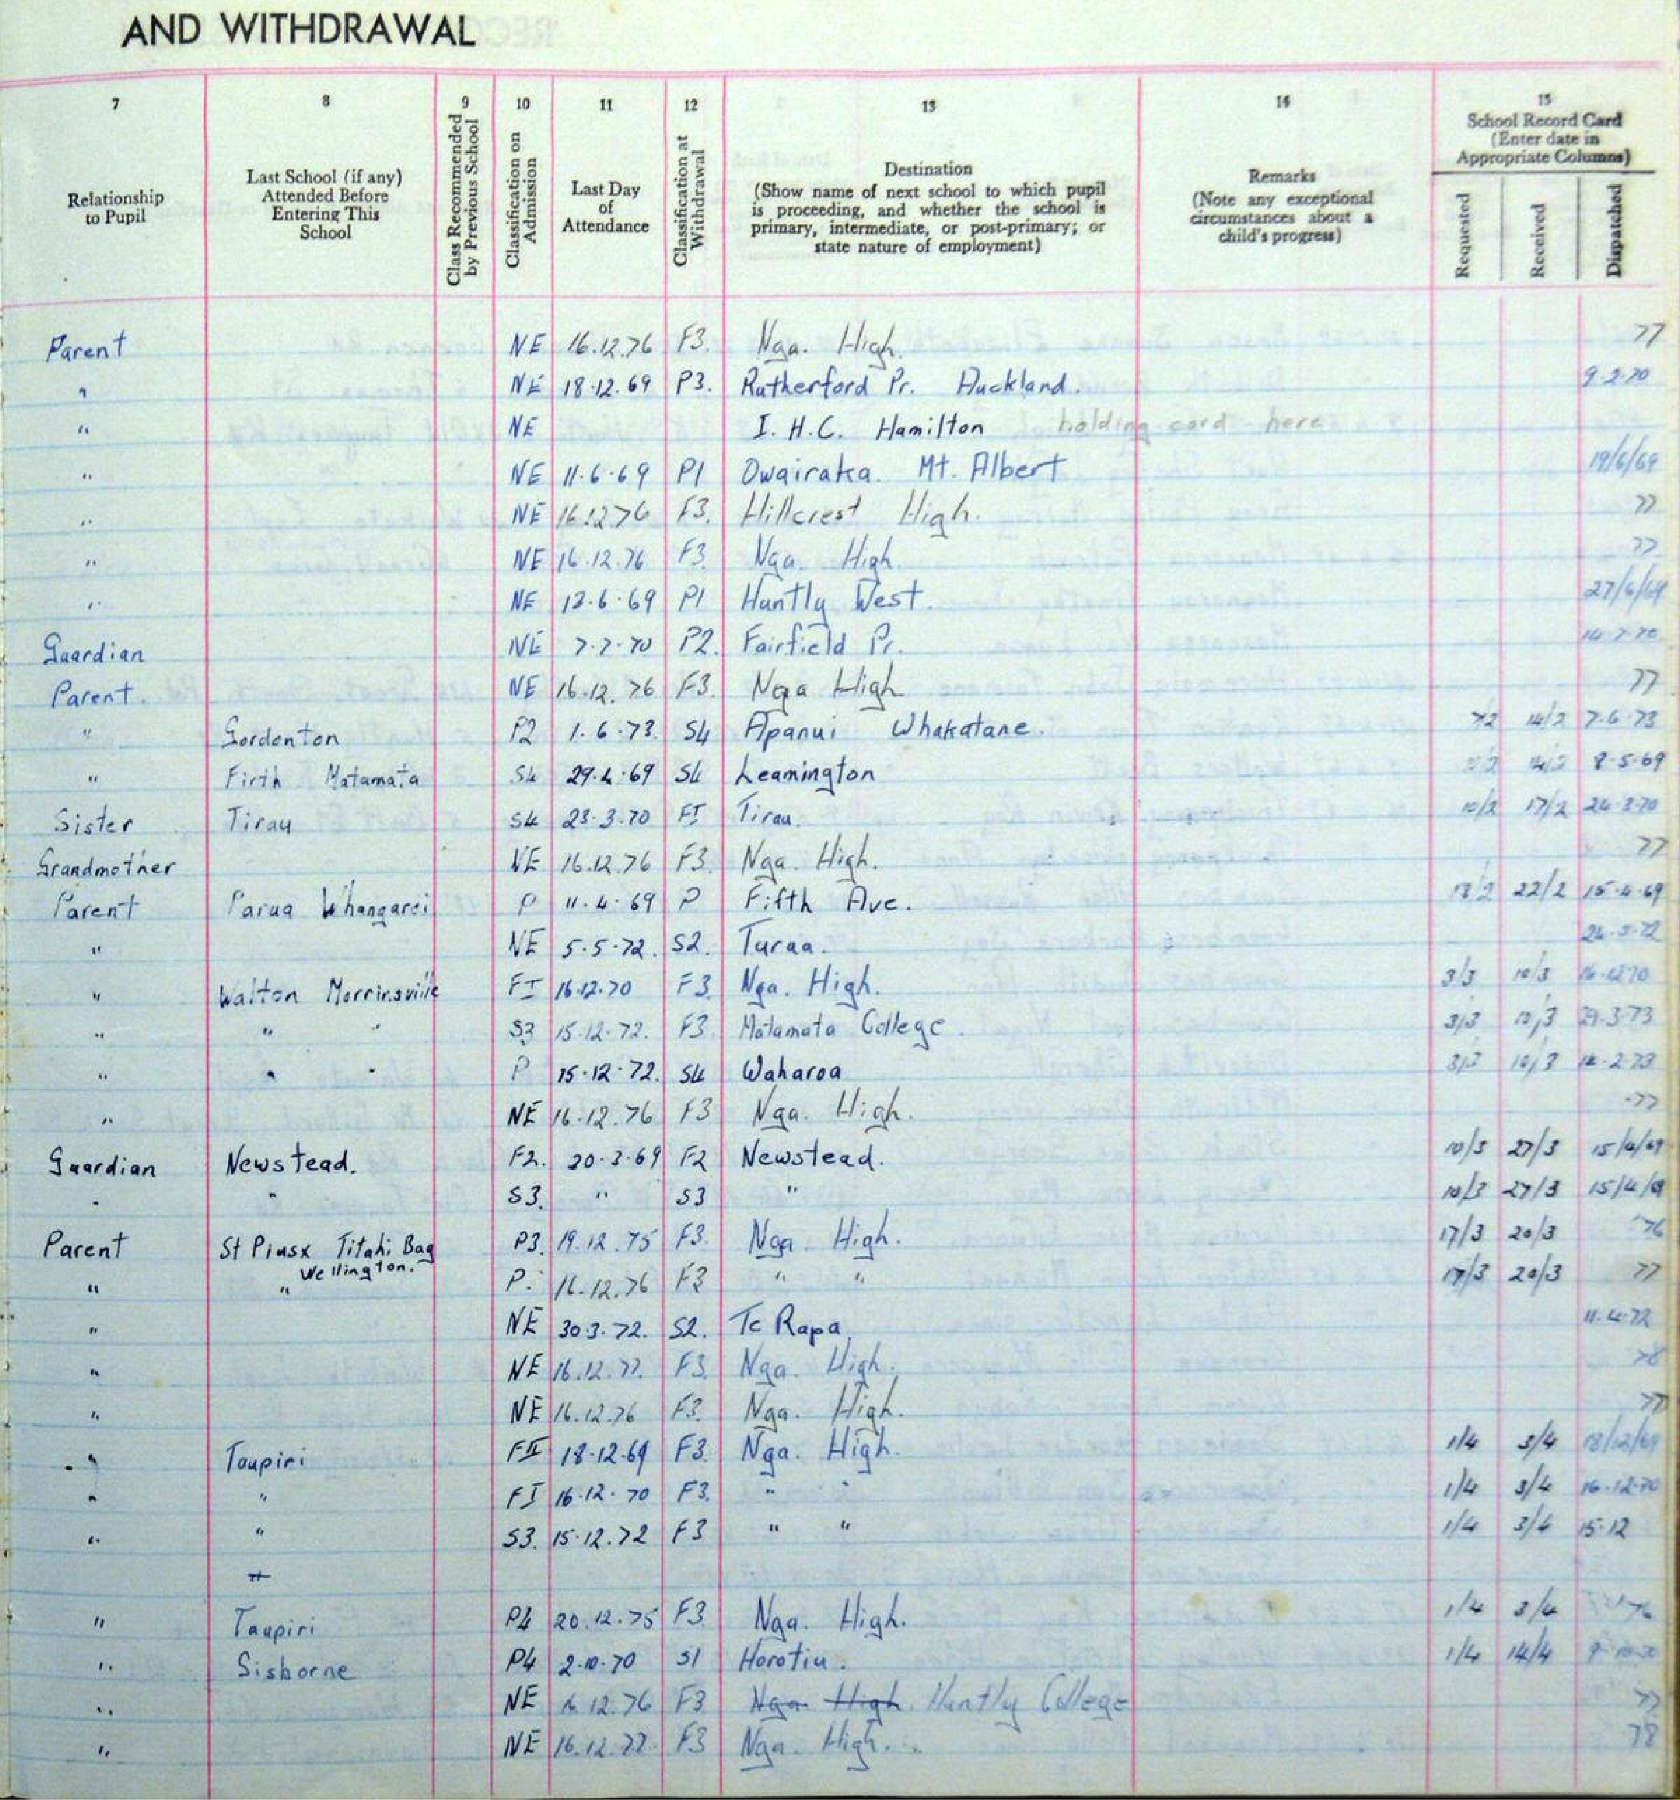 AND WITHDRAWAL
7 8 9 10 11 12 13 14 15
Relationship to Pupil
Last School (if any) Attended Before Entering This School
Class Recommended by Previous School
Classification on Admission
Last Day of Attendance
Classification at Withdrawal
Destination
(Show name of next school to which pupil is proceeding, and whether the school is primary, intermediate, or post-primary; or state nature of employment)
Remarks
(Note any exceptional circumstances about a child's progress)
School Record Card
(Enter date in Appropriate Columns)
Requested Received Dispatched
Parent NE 16.12.76 F3. Nga. High. 77
" NE 18.12.69 P3. Rutherford Pr. Auckland. 9.2.70
" NE I.H.C. Hamilton holding card here
" NE 11.6.69 P1 Owairaka. Mt. Albert 19/6/69
" NE 16.12.76 F3. Hillcrest High. 77
" NE 16.12.76 F3. Nga. High. 77
" NE 13.6.69 P1 Huntly West. 27/6/69
Guardian NE 7.7.70 P2. Fairfield Pr. 14.7.70
Parent. NE 16.12.76 F3. Nga High 77
" Gordonton P2 1.6.73. S4 Apanui Whakatane. 7/2 14/2 7.6.73
" Firth Matamata S4 29.4.69 S4 Leamington 14/2 8.5.69
Sister Tirau S4 23.3.70 FI Tirau. 10/2 17/2 24.3.70
Grandmother NE 16.12.76 F3. Nga. High. 77
Parent Parua Whangarei P 11.4.69 P Fifth Ave. 18/2 22/2 15.4.69
" NE 5.5.72. S2. Turua. 24.5.72
" Walton Morrinsville FI 16.12.70 F3. Nga. High. 3/3 10/3 16.12.70
" " " S3 15.12.72. F3. Matamata College. 3/3 10/3 29.3.73
" " " P 15.12.72. S4 Waharoa 3/3 10/3 14.2.73
" NE 16.12.76 F3 Nga. High. 77
Guardian Newstead. F2. 20.3.69 F2 Newstead. 10/3 27/3 15/4/69
" " S3. " S3 " 10/3 27/3 15/4/69
Parent St Piusx Titahi Bay P3. 19.12.75 F3. Nga. High. 17/3 20/3 76
Wellington.
" " P. 16.12.76 F3 " " 17/3 20/3 77
" NE 30.3.72. S2. Te Rapa. 11.4.72
" NE 16.12.77. F3. Nga. High. 78
" NE 16.12.76 F3. Nga. High. 77
" Taupiri FII 18.12.69 F3. Nga. High. 1/4 3/4 18/12/69
" " FI 16.12.70 F3. " " 1/4 3/4 16.12.70
" " S3. 15.12.72 F3 " " 1/4 3/4 15.12
"
" Taupiri P4 20.12.75 F3. Nga. High. 1/4 3/4 76
" Gisborne P4 2.10.70 S1 Horotiu. 1/4 14/4
" NE 16.12.76 F3 Nga High. Huntly College 77
" NE 16.12.77. F3 Nga. High. 78